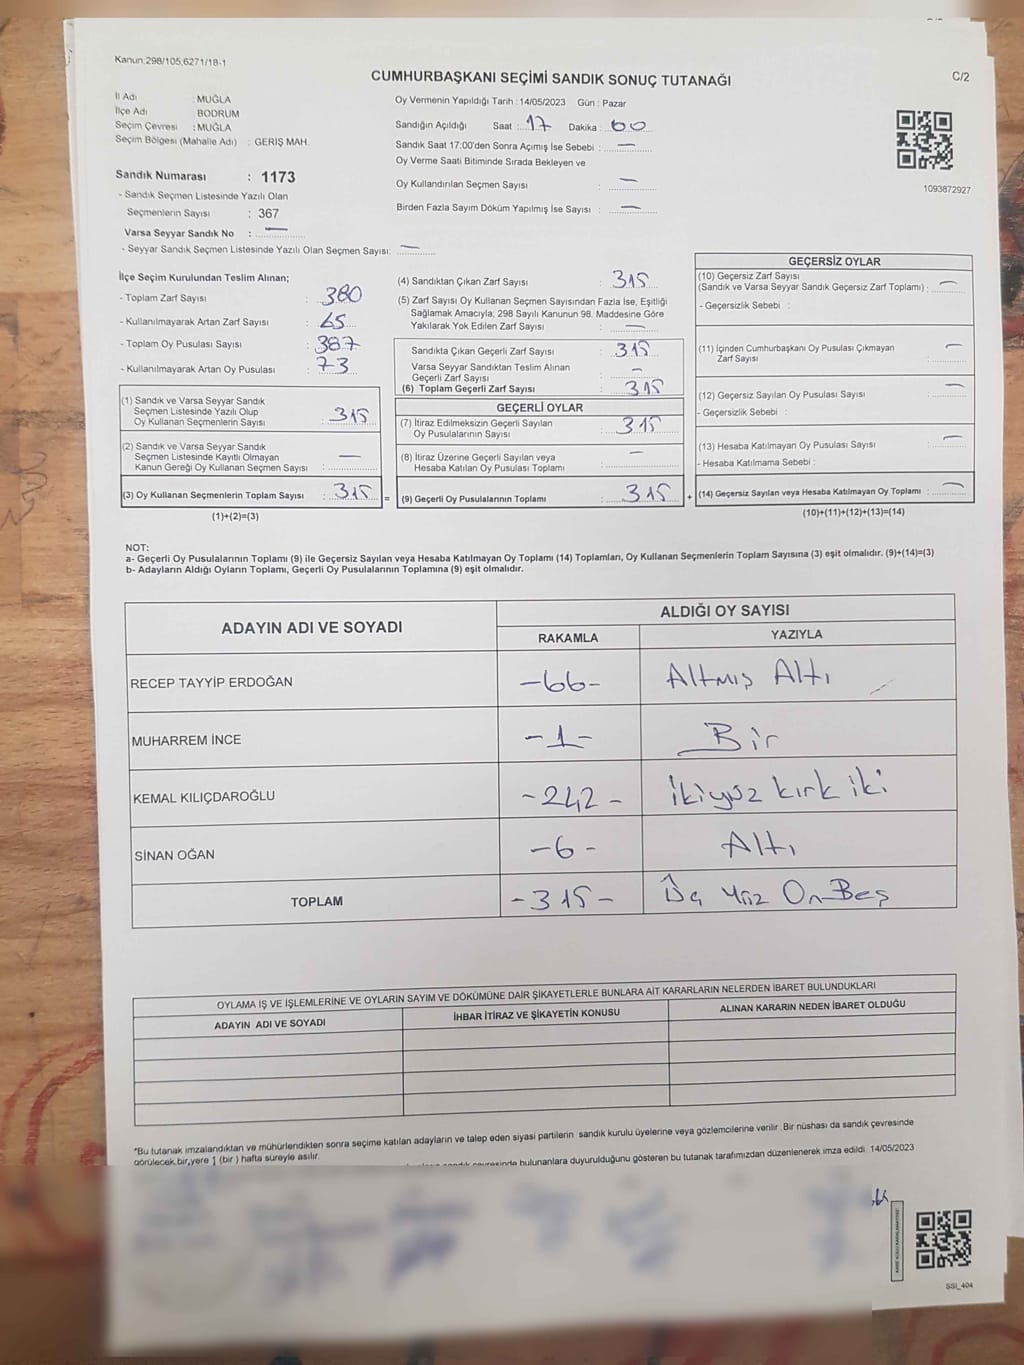 Kanun:298/105;6271/18-1
CUMHURBAŞKANI SEÇİMİ SANDIK SONUÇ TUTANAĞI
C/2
İl Adı : MUĞLA
İlçe Adı : BODRUM
Seçim Çevresi : MUĞLA
Seçim Bölgesi (Mahalle Adı) : GERİŞ MAH.
Sandık Numarası : 1173
- Sandık Seçmen Listesinde Yazılı Olan
Seçmenlerin Sayısı : 367
Varsa Seyyar Sandık No : —
- Seyyar Sandık Seçmen Listesinde Yazılı Olan Seçmen Sayısı: —
Oy Vermenin Yapıldığı Tarih : 14/05/2023 Gün : Pazar
Sandığın Açıldığı Saat : 17 Dakika : 00
Sandık Saat 17:00'den Sonra Açımış İse Sebebi : —
Oy Verme Saati Bitiminde Sırada Bekleyen ve
Oy Kullandırılan Seçmen Sayısı : —
Birden Fazla Sayım Döküm Yapılmış İse Sayısı : —
1093872927
İlçe Seçim Kurulundan Teslim Alınan;
- Toplam Zarf Sayısı : 380
- Kullanılmayarak Artan Zarf Sayısı : 65
- Toplam Oy Pusulası Sayısı : 387
- Kullanılmayarak Artan Oy Pusulası : 73
(1) Sandık ve Varsa Seyyar Sandık
Seçmen Listesinde Yazılı Olup
Oy Kullanan Seçmenlerin Sayısı : 315
(2) Sandık ve Varsa Seyyar Sandık
Seçmen Listesinde Kayıtlı Olmayan
Kanun Gereği Oy Kullanan Seçmen Sayısı : —
(3) Oy Kullanan Seçmenlerin Toplam Sayısı : 315 =
(1)+(2)=(3)
(4) Sandıktan Çıkan Zarf Sayısı : 315
(5) Zarf Sayısı Oy Kullanan Seçmen Sayısından Fazla İse, Eşitliği
Sağlamak Amacıyla; 298 Sayılı Kanunun 98. Maddesine Göre
Yakılarak Yok Edilen Zarf Sayısı : —
Sandıkta Çıkan Geçerli Zarf Sayısı : 315
Varsa Seyyar Sandıktan Teslim Alınan
Geçerli Zarf Sayısı : -
(6) Toplam Geçerli Zarf Sayısı : 315
GEÇERLİ OYLAR
(7) İtiraz Edilmeksizin Geçerli Sayılan
Oy Pusulalarının Sayısı : 315
(8) İtiraz Üzerine Geçerli Sayılan veya
Hesaba Katılan Oy Pusulası Toplamı : —
(9) Geçerli Oy Pusulalarının Toplamı : 315 +
GEÇERSİZ OYLAR
(10) Geçersiz Zarf Sayısı
(Sandık ve Varsa Seyyar Sandık Geçersiz Zarf Toplamı) : —
- Geçersizlik Sebebi :
(11) İçinden Cumhurbaşkanı Oy Pusulası Çıkmayan
Zarf Sayısı : —
(12) Geçersiz Sayılan Oy Pusulası Sayısı : —
- Geçersizlik Sebebi :
(13) Hesaba Katılmayan Oy Pusulası Sayısı : —
- Hesaba Katılmama Sebebi :
(14) Geçersiz Sayılan veya Hesaba Katılmayan Oy Toplamı : —
(10)+(11)+(12)+(13)=(14)
NOT:
a- Geçerli Oy Pusulalarının Toplamı (9) ile Geçersiz Sayılan veya Hesaba Katılmayan Oy Toplamı (14) Toplamları, Oy Kullanan Seçmenlerin Toplam Sayısına (3) eşit olmalıdır. (9)+(14)=(3)
b- Adayların Aldığı Oyların Toplamı, Geçerli Oy Pusulalarının Toplamına (9) eşit olmalıdır.
ADAYIN ADI VE SOYADI
ALDIĞI OY SAYISI
RAKAMLA YAZIYLA
RECEP TAYYİP ERDOĞAN -66- Altmış Altı
MUHARREM İNCE -1- Bir
KEMAL KILIÇDAROĞLU -242- İkiyüz kırk iki
SİNAN OĞAN -6- Altı
TOPLAM -315- Üç Yüz On Beş
OYLAMA İŞ VE İŞLEMLERİNE VE OYLARIN SAYIM VE DÖKÜMÜNE DAİR ŞİKAYETLERLE BUNLARA AİT KARARLARIN NELERDEN İBARET BULUNDUKLARI
ADAYIN ADI VE SOYADI İHBAR İTİRAZ VE ŞİKAYETİN KONUSU ALINAN KARARIN NEDEN İBARET OLDUĞU
*Bu tutanak imzalandıktan ve mühürlendikten sonra seçime katılan adayların ve talep eden siyasi partilerin sandık kurulu üyelerine veya gözlemcilerine verilir. Bir nüshası da sandık çevresinde
görülecek bir yere 1 (bir) hafta süreyle asılır.
sandık çevresinde bulunanlara duyurulduğunu gösteren bu tutanak tarafımızdan düzenlenerek imza edildi. 14/05/2023
SSI_404